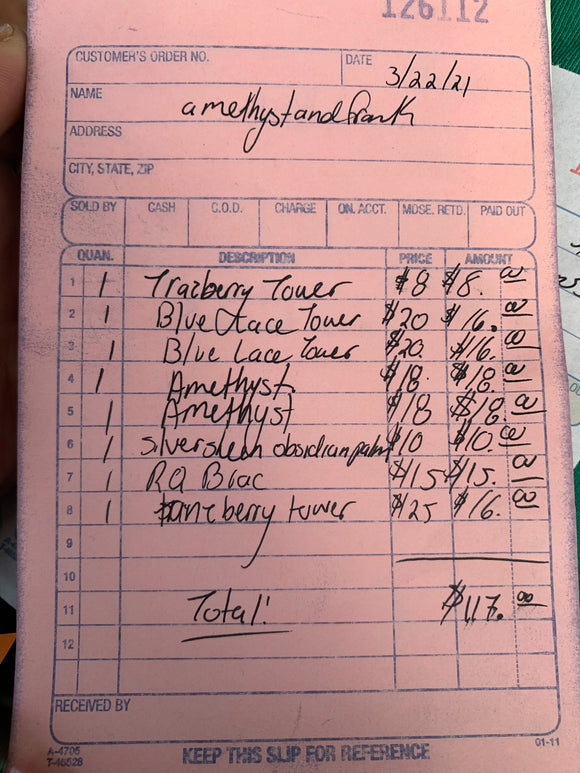 126112
CUSTOMER'S ORDER NO. DATE 3/22/21
NAME amethystandfrank
ADDRESS
CITY, STATE, ZIP
SOLD BY CASH C.O.D. CHARGE ON. ACCT. MDSE. RETD. PAID OUT
QUAN. DESCRIPTION PRICE AMOUNT
1 1 Tracberry Tower $8 $8.00
2 1 Blue Lace Tower $20 $16.00
3 1 Blue Lace Tower $20. $16.00
4 1 Amethyst $18. $18.00
5 1 Amethyst $18 $18.00
6 1 silversheen obsidian palm $10 $10.00
7 1 RQ Brac $15 $15.00
8 1 berry tower $25 $16.00
9
10
11 Total! $117.00
12
RECEIVED BY
A-4705
T-46528
KEEP THIS SLIP FOR REFERENCE
01-11